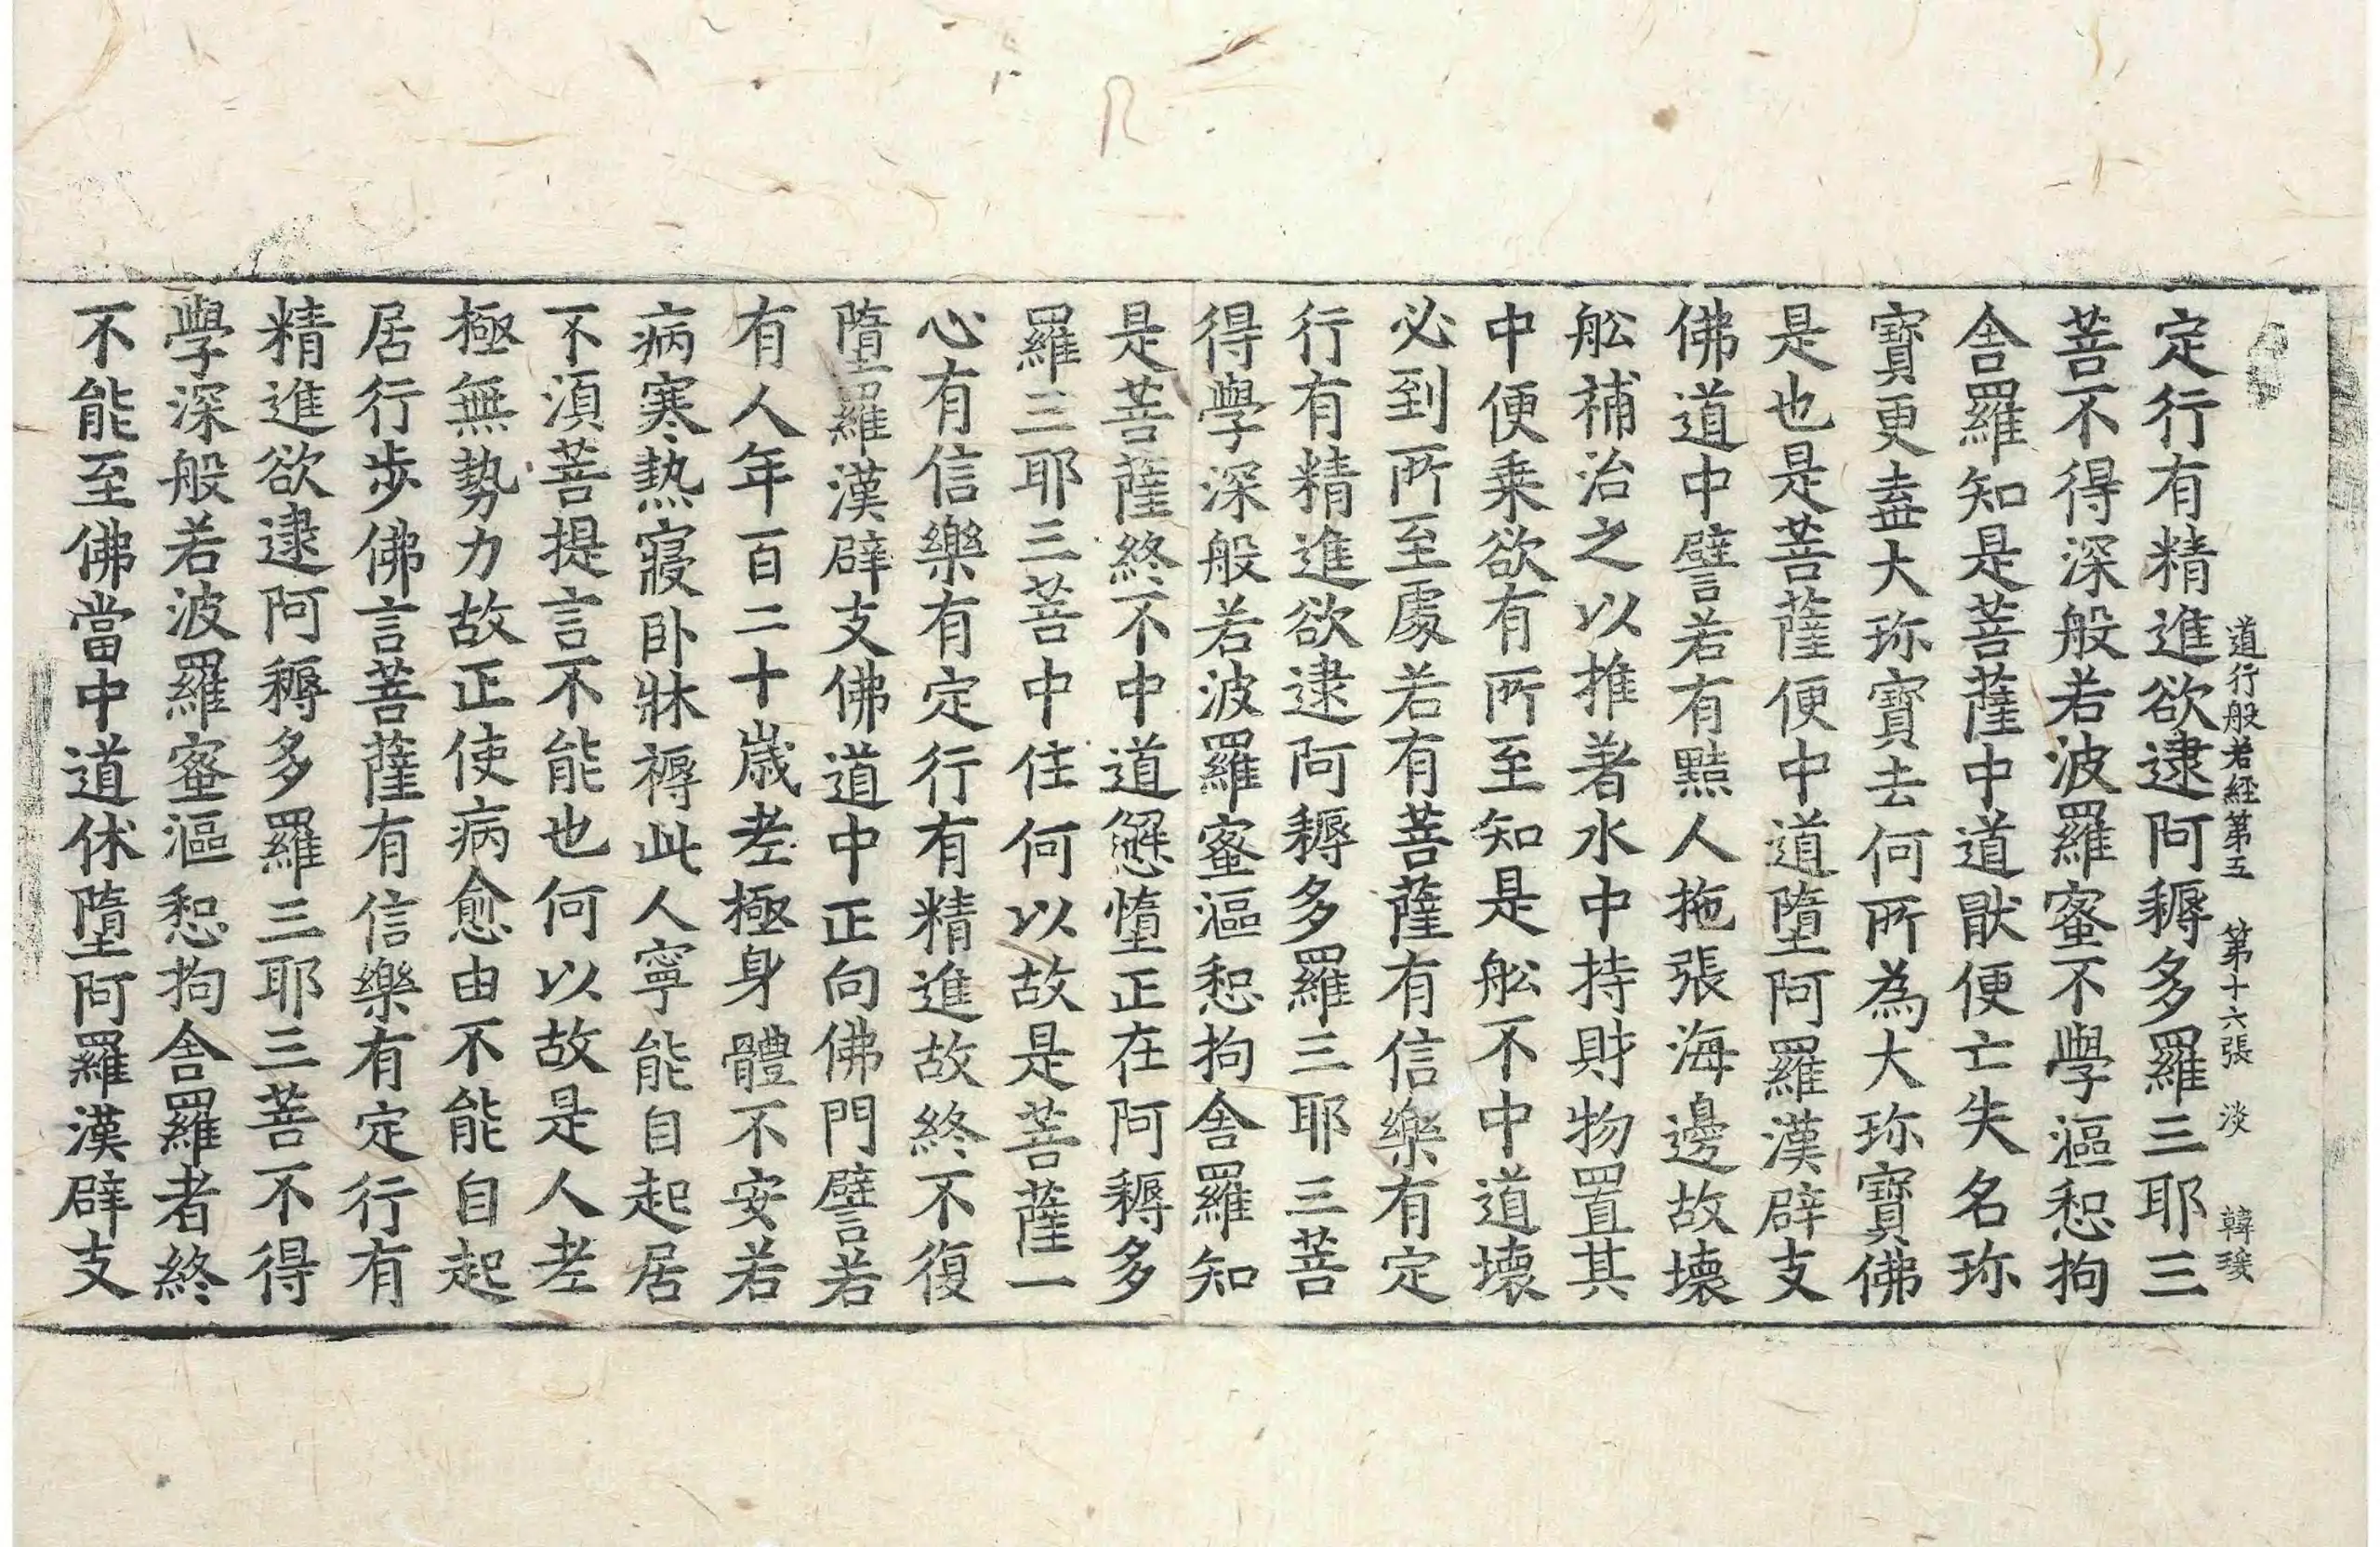 道行般若経第五 第十六張 淡 韓琰
定行有精進欲逮阿耨多羅三耶三
菩不得深般若波羅蜜不學漚惒拘
舍羅知是菩薩中道猒便亡失名珎
寶更棄大珎寶去何所為大珎寶佛
是也是菩薩便中道墮阿羅漢辟支
佛道中譬若有黠人拖張海邊故壞
舩補治之以推著水中持財物置其
中便乗欲有所至知是舩不中道壞
必到所至處若有菩薩有信樂有定
行有精進欲逮阿耨多羅三耶三菩
得學深般若波羅蜜漚惒拘舍羅知
是菩薩終不中道懈惰正在阿耨多
羅三耶三菩中住何以故是菩薩一
心有信樂有定行有精進故終不復
墮羅漢辟支佛道中正向佛門譬若
有人年百二十歳老極身體不安若
病寒熱寢卧牀褥此人寧能自起居
不湏菩提言不能也何以故是人老
極無勢力故正使病愈由不能自起
居行步佛言菩薩有信樂有定行有
精進欲逮阿耨多羅三耶三菩不得
學深般若波羅蜜漚惒拘舍羅者終
不能至佛當中道休墮阿羅漢辟支